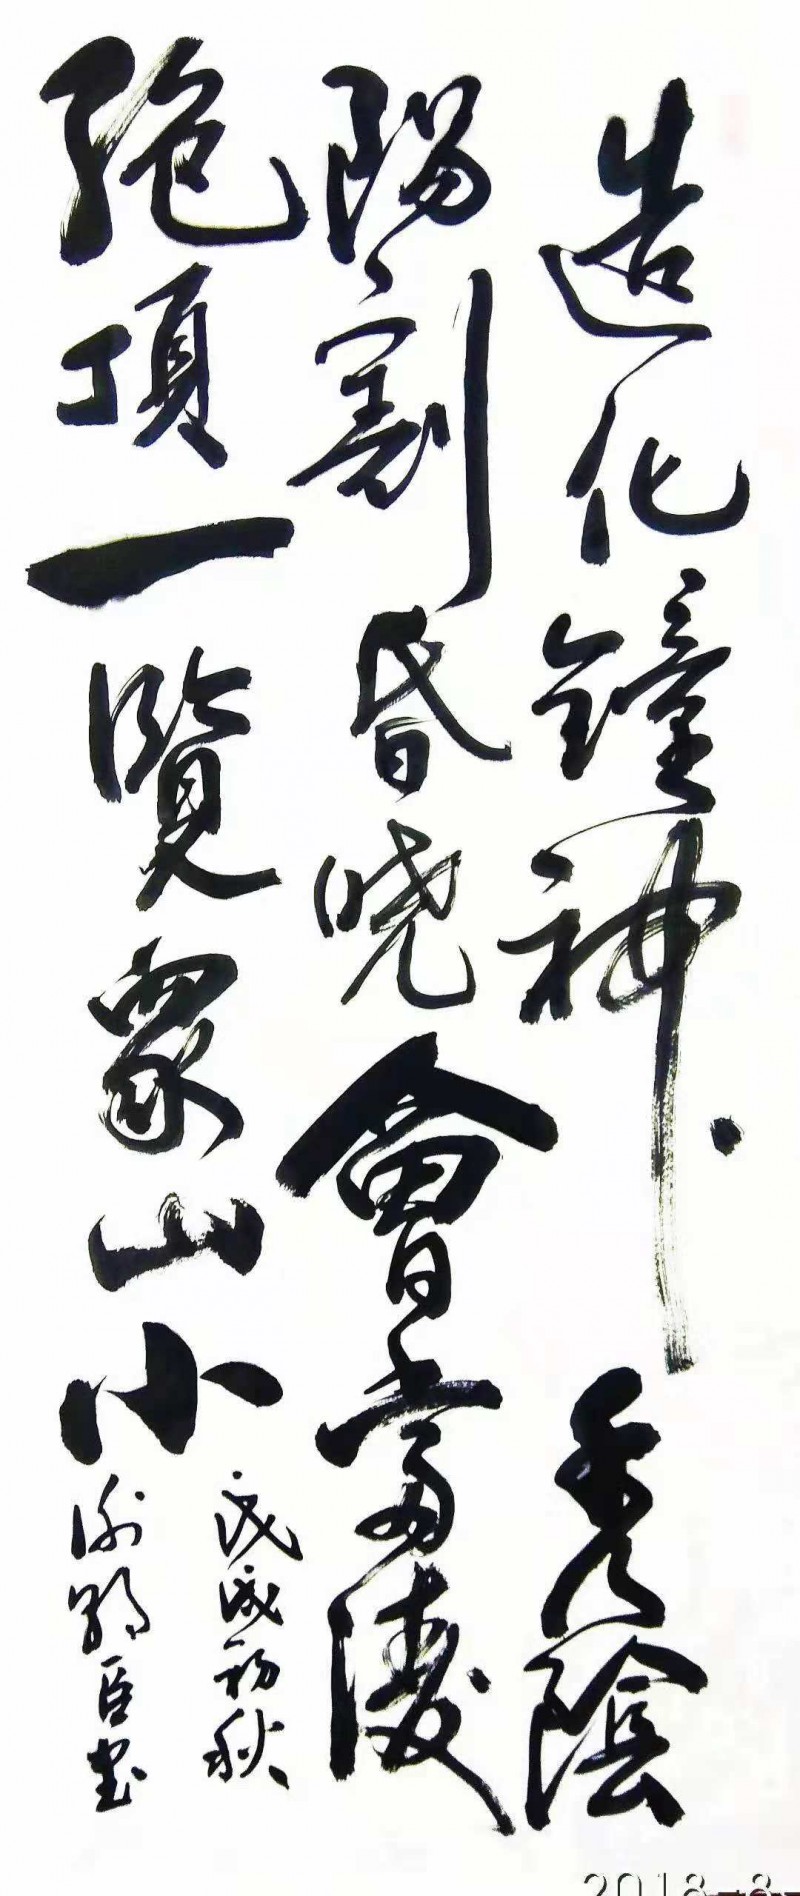 造化鐘神秀陰
陽割昏曉會當淩
絕頂一覽眾山小
戊戌初秋
臣书
2018-8-